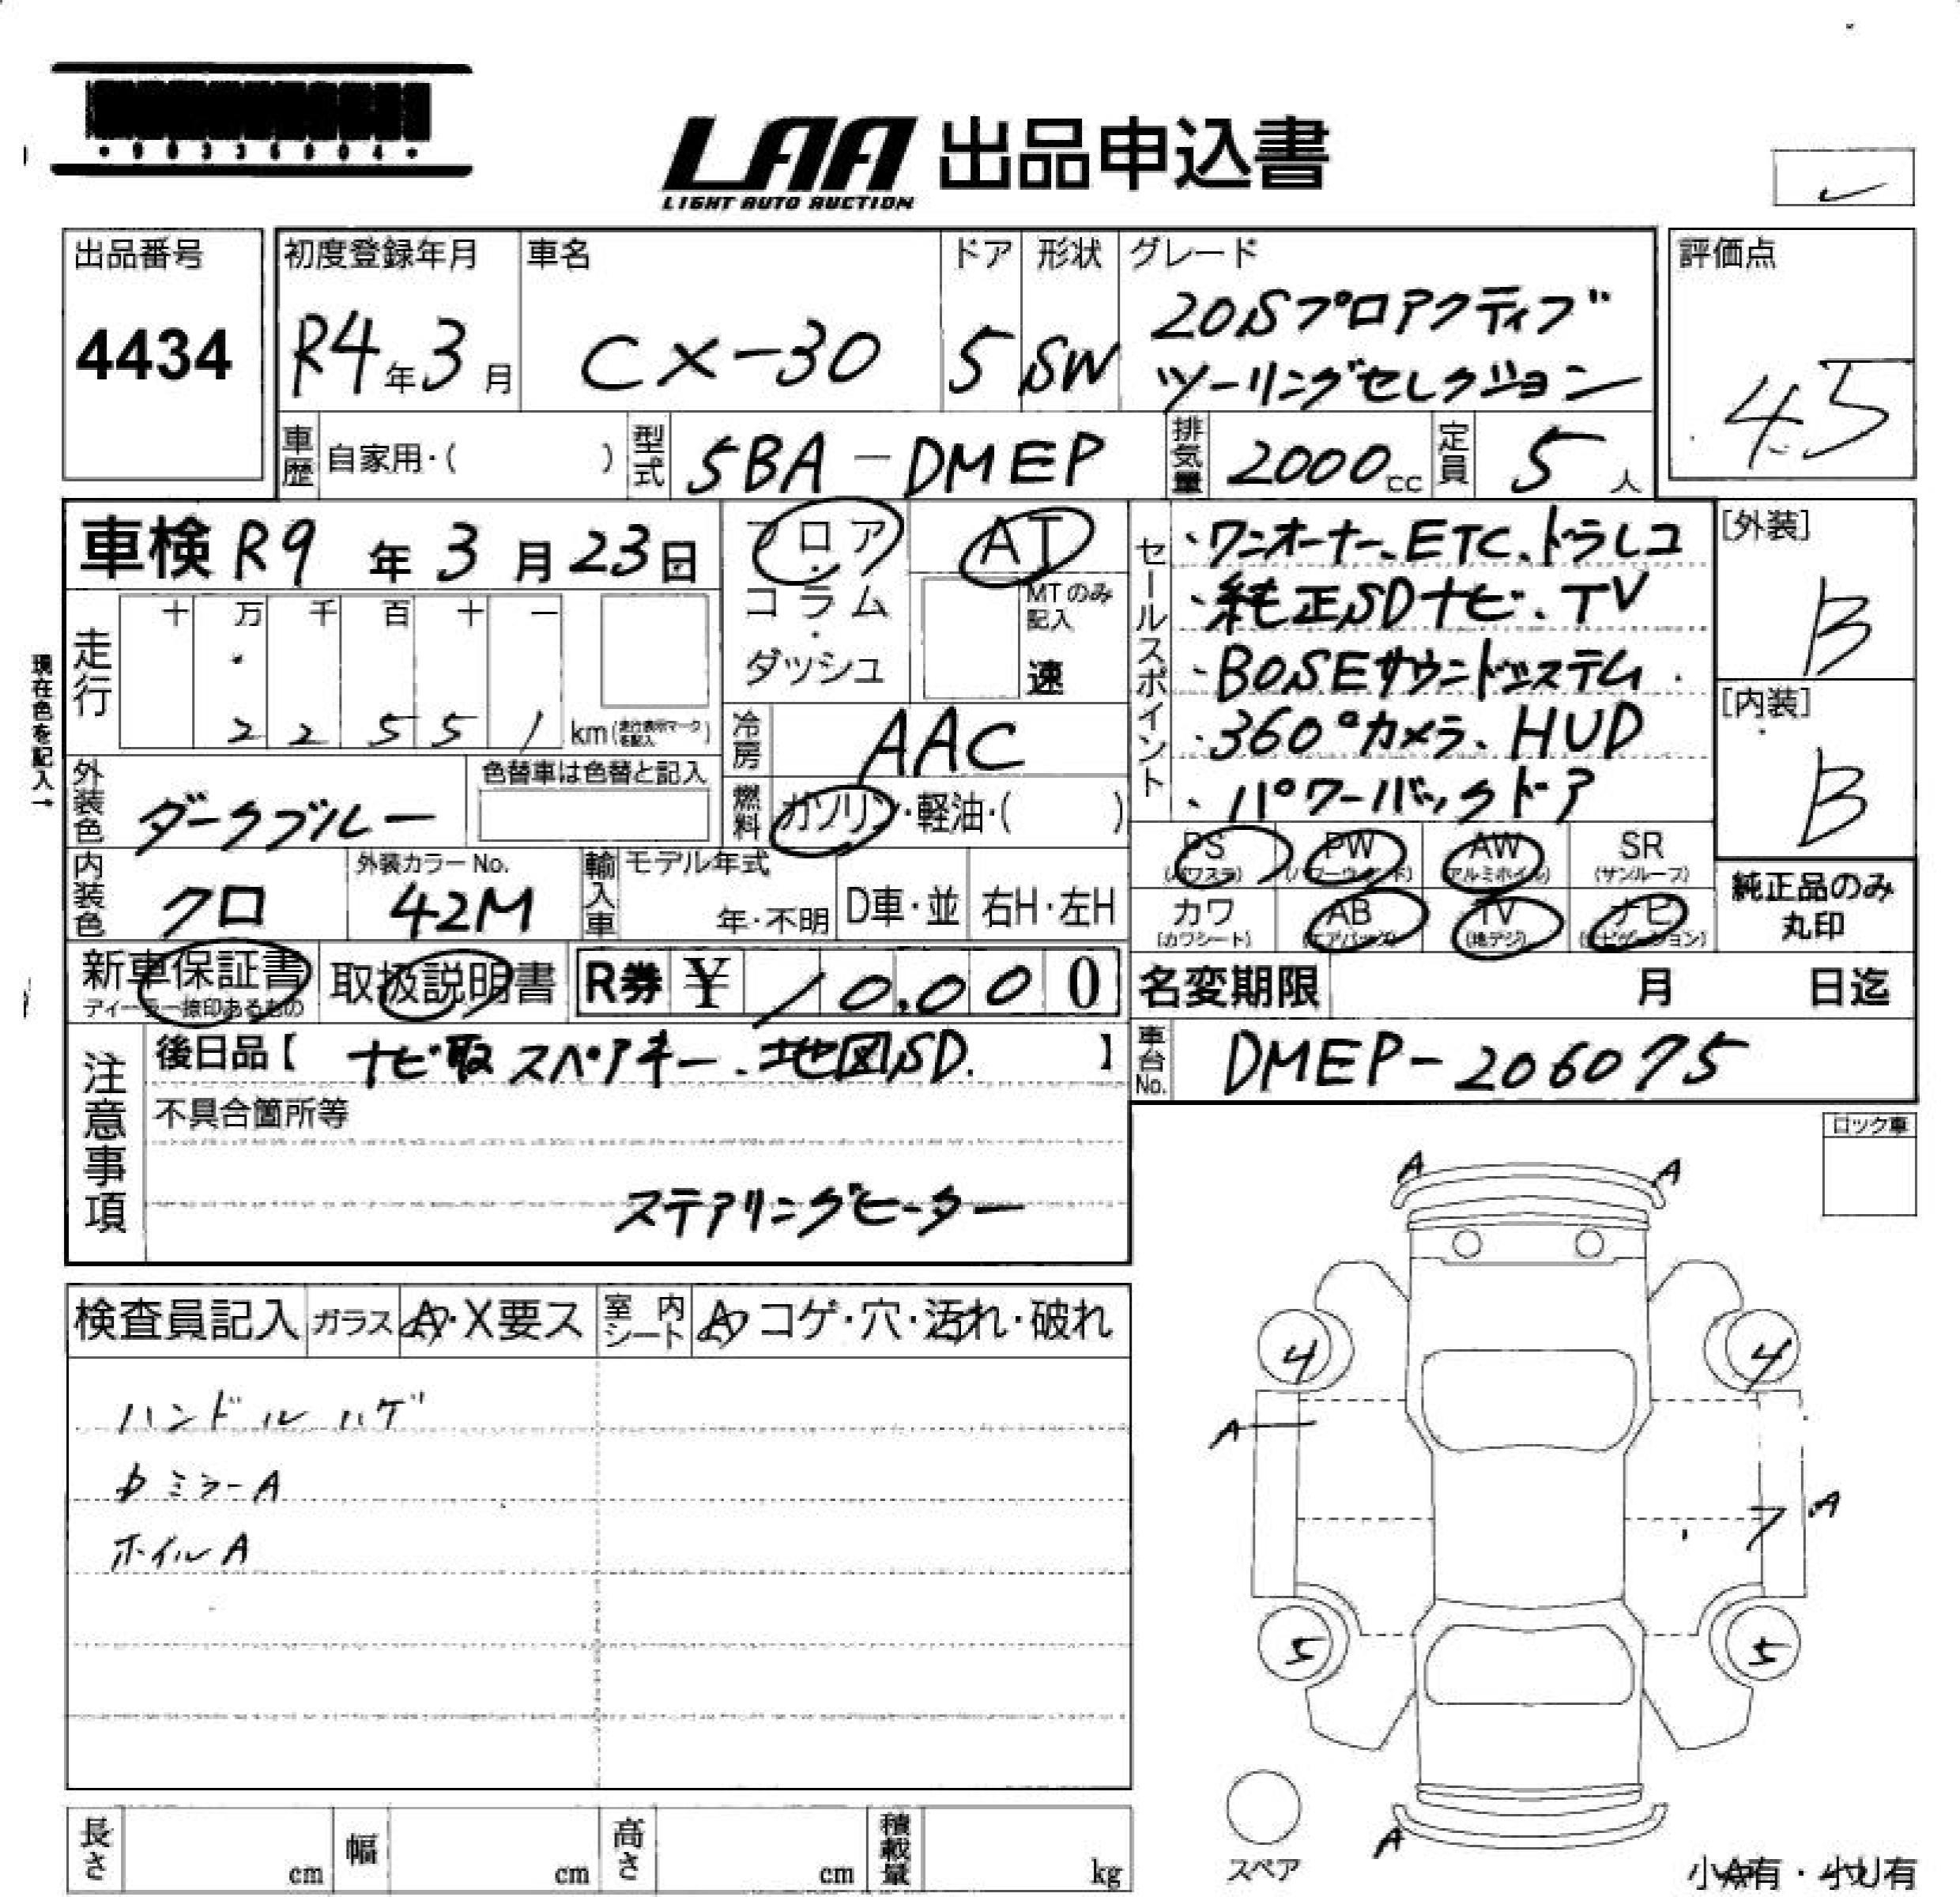 *90336904*
LAA 出品申込書
LIGHT AUTO AUCTION
出品番号
4434
初度登録年月
R4年3月
車名
CX-30
ドア
5
形状
SW
グレード
20Sプロアクティブ
ツーリングセレクション
評価点
4.5
車歴 自家用・( )
型式 5BA-DMEP
排気量 2000cc
定員 5人
車検 R9年3月23日
フロア・コラム・ダッシュ
AT
MTのみ記入
速
セールスポイント
・ワンオーナー、ETC、ドラレコ
・純正SDナビ、TV
・BOSEサウンドシステム
・360°カメラ、HUD
・パワーバックドア
[外装]
B
[内装]
B
現在色を記入→
走行
十 万 千 百 十 一
2 2 5 5 1 km(走行表示マークを記入)
冷房 AAC
外装色 ダークブルー
色替車は色替と記入
燃料 ガソリン・軽油・( )
内装色 クロ
外装カラーNo.
42M
輸入車 モデル年式
年・不明
D車・並
右H・左H
PS (パワステ)
PW (パワーウィンド)
AW (アルミホイル)
SR (サンルーフ)
カワ (カワシート)
AB (エアバッグ)
TV (地デジ)
ナビ (ナビゲーション)
純正品のみ
丸印
新車保証書
ディーラー捺印あるもの
取扱説明書
R券 ¥ 10,000
名変期限 月 日迄
注意事項
後日品【 ナビ取 スペアキー、地図SD. 】
車台No. DMEP-206075
不具合箇所等
ステアリングヒーター
ロック車
検査員記入
ガラス A・X要ス
室内シート A コゲ・穴・汚れ・破れ
ハンドルハゲ
ミラーA
ホイルA
A A
4 4
A
7 A
5 5
A
スペア
長さ cm
幅 cm
高さ cm
積載量 kg
小A有・小U有